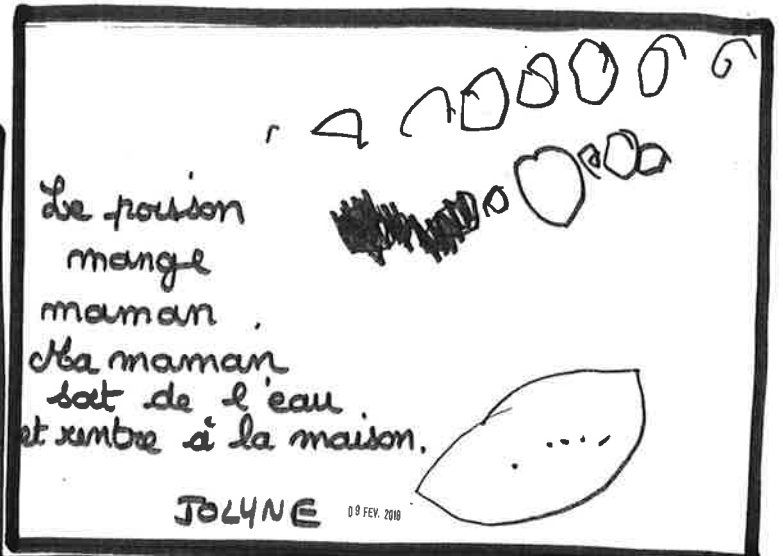 Le poisson
mange
maman.
Ma maman
sort de l'eau
et rentre à la maison.
JOLYNE 09 FEV. 2018